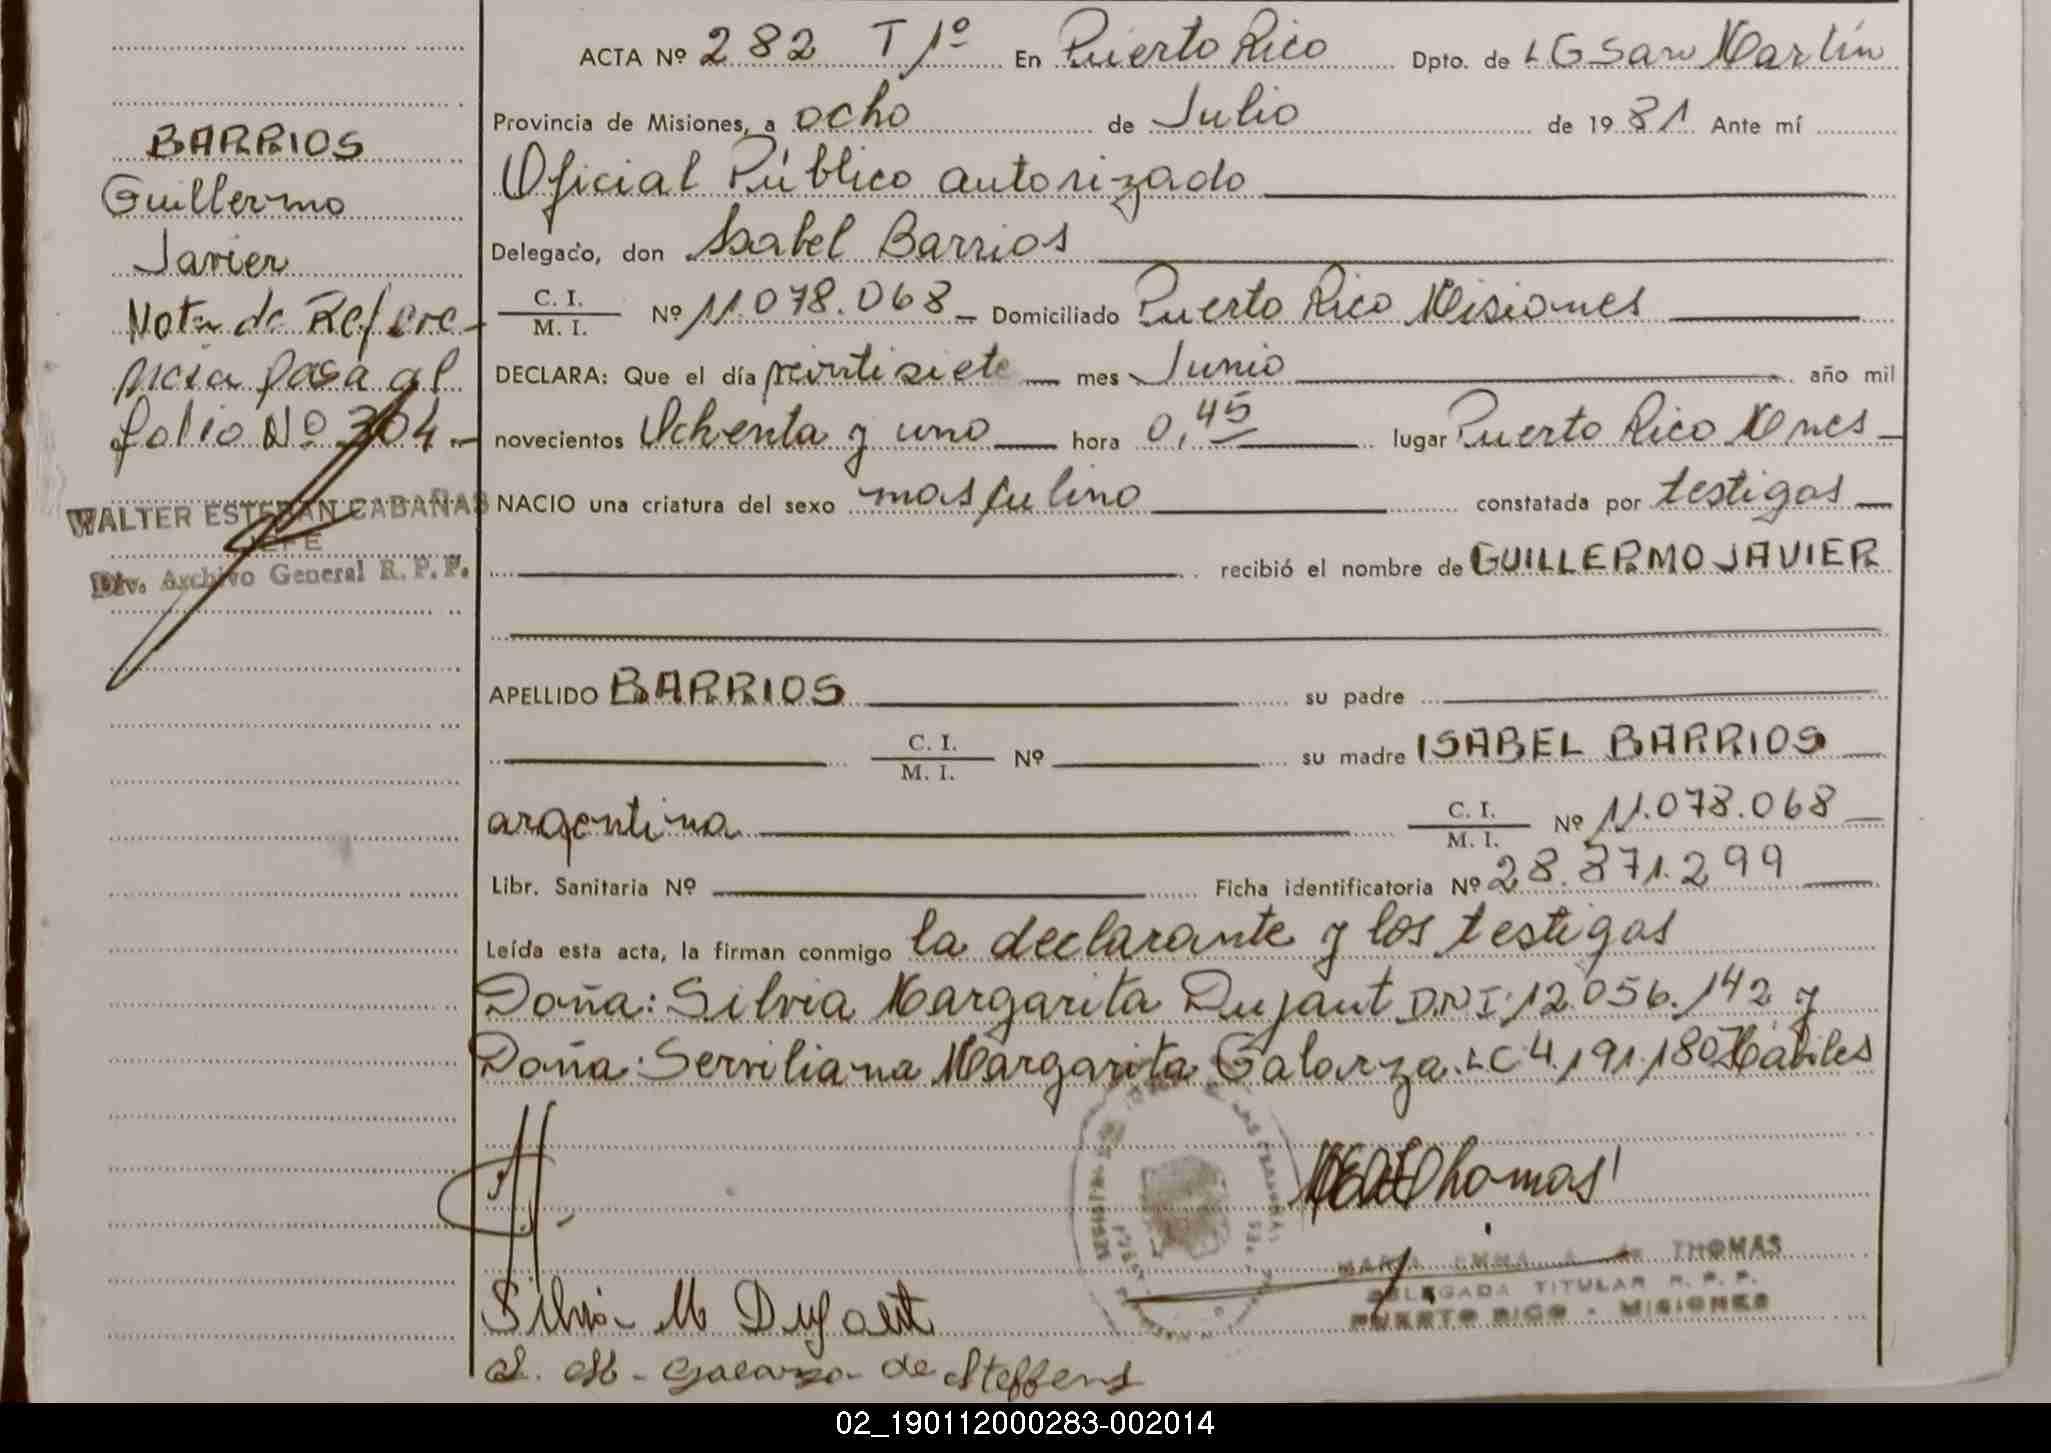 ACTA Nº 282 T 1º En Puerto Rico Dpto. de L G San Martín
Provincia de Misiones, a ocho de Julio de 1981 Ante mí
Oficial Público autorizado
Delegado, don Isabel Barrios
C. I. / M. I. Nº 11.078.068 Domiciliado Puerto Rico Misiones
DECLARA: Que el día veintisiete mes Junio año mil
novecientos Ochenta y uno hora 0,45 lugar Puerto Rico Mnes
NACIO una criatura del sexo masculino constatada por testigos
recibió el nombre de GUILLERMO JAVIER
APELLIDO BARRIOS su padre
C. I. / M. I. Nº su madre ISABEL BARRIOS
argentina C. I. / M. I. Nº 11.078.068
Libr. Sanitaria Nº Ficha identificatoria Nº 28.871.299
Leída esta acta, la firman conmigo la declarante y los testigos
Doña: Silvia Margarita Dujaut D.N.I: 12.056.142 y
Doña: Serviliana Margarita Galarza. LC 4.191.180 Hábiles
BARRIOS
Guillermo
Javier
Nota de Refere-
ncia pasa al
folio Nº 304.-
WALTER ESTEBAN CABAÑAS
JEFE
Div. Archivo General R. P. P.
Thomas
MARIA EMMA A. de THOMAS
DELEGADA TITULAR R. P. P.
PUERTO RICO - MISIONES
Silvia M Dujaut
S. M. Galarza de Steffens
02_190112000283-002014